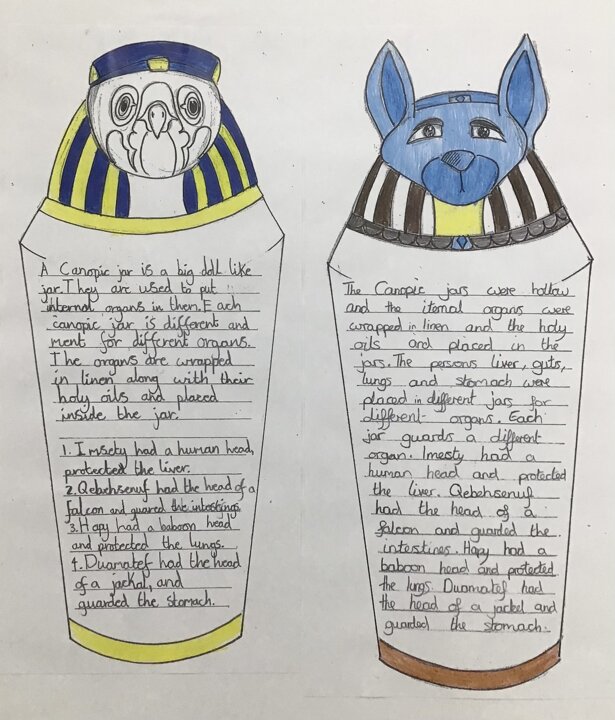 A Canopic jar is a big doll like
jar. They are used to put
internal organs in them. Each
canopic jar is different and
ment for different organs.
The organs are wrapped
in linen along with their
holy oils and placed
inside the jar.
1. Imsety had a human head,
protected the liver.
2. Qebehsenuf had the head of a
falcon and guared the intestings
3. Hapy had a baboon head
and protected the lungs.
4. Duamatef had the head
of a jackal, and
guarded the stomach.
The Canopic jars were hollow
and the iternal organs were
wrapped in linen and the holy
oils and placed in the
jars. The persons liver, guts,
lungs and stomach were
placed in different jars for
different organs. Each
jar guards a different
organ. Imesty had a
human head and protected
the liver. Qebehsenuf
had the head of a
falcon and guarded the
intestines. Hapy had a
baboon head and protected
the lungs. Duamatef had
the head of a jackel and
guarded the stomach.